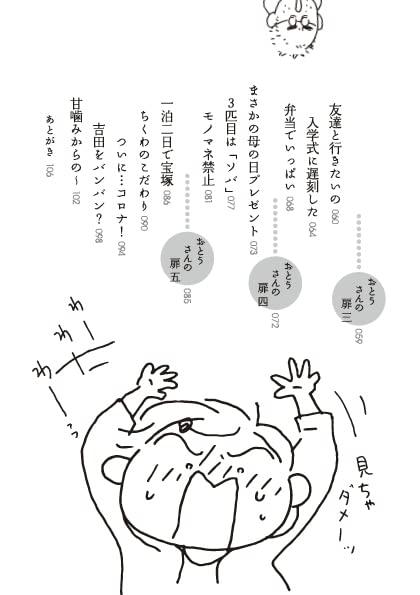 おとう
さんの
扉 三 059
友達と行きたいの 060
入学式に遅刻した 064
弁当でいっぱい 068
おとう
さんの
扉 四 072
まさかの母の日プレゼント 073
3匹目は「ソバ」 077
モノマネ禁止 081
おとう
さんの
扉 五 085
一泊二日で宝塚 086
ちくわのこだわり 090
ついに…コロナ! 094
吉田をバンバン? 098
甘噛みからの〜 102
あとがき 106
見ちゃ
ダメーッ
わー
わー
わーっ